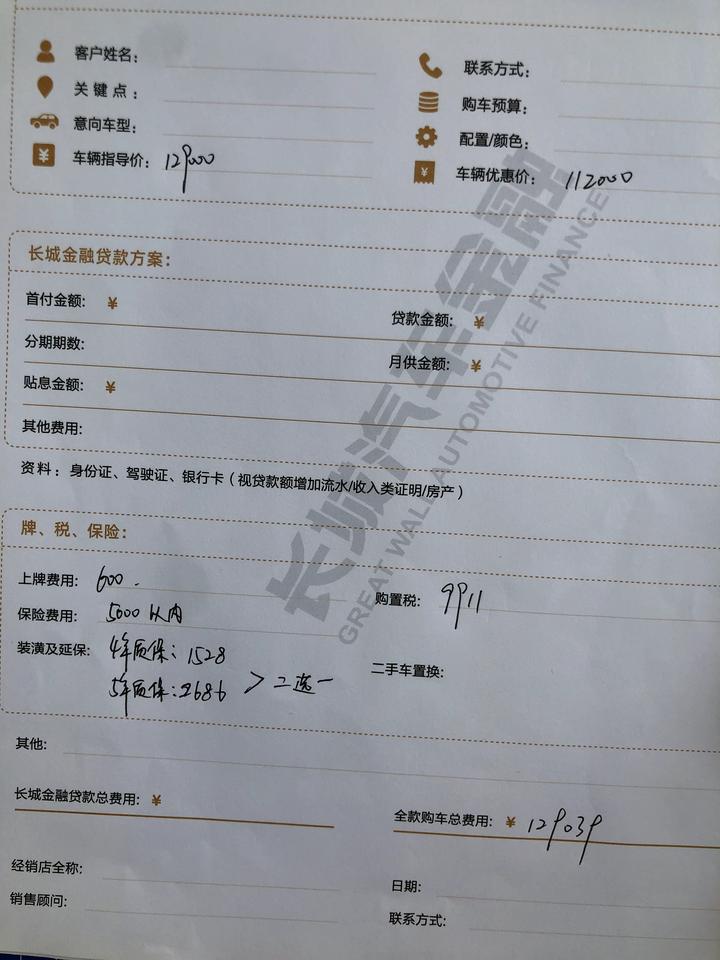 客户姓名:
联系方式:
关键点:
购车预算:
意向车型:
配置/颜色:
车辆指导价: 129000
车辆优惠价: 112000
长城汽车金融
GREAT WALL AUTOMOTIVE FINANCE
长城金融贷款方案:
首付金额: ¥
贷款金额: ¥
分期期数:
月供金额: ¥
贴息金额: ¥
其他费用:
资料: 身份证、驾驶证、银行卡(视贷款额增加流水/收入类证明/房产)
牌、税、保险:
上牌费用: 600.
购置税: 9911
保险费用: 5000以内
装潢及延保: 4年质保: 1528
5年质保: 2686 > 二选一
二手车置换:
其他:
长城金融贷款总费用: ¥
全款购车总费用: ¥ 129039
经销店全称:
日期:
销售顾问:
联系方式: